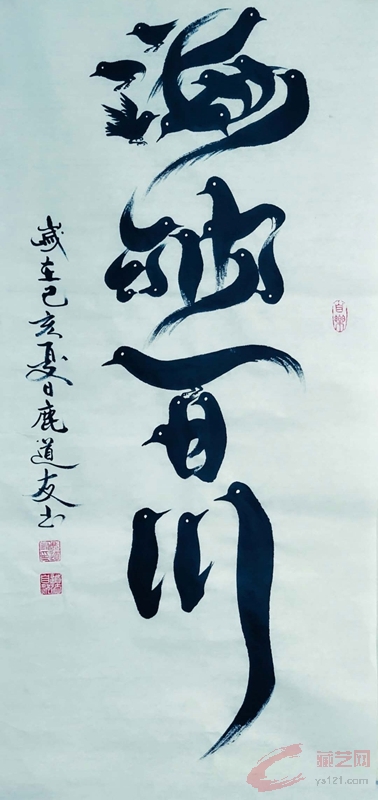 海纳百川
岁在己亥夏日鹿道友书
藏艺网
ys121.com